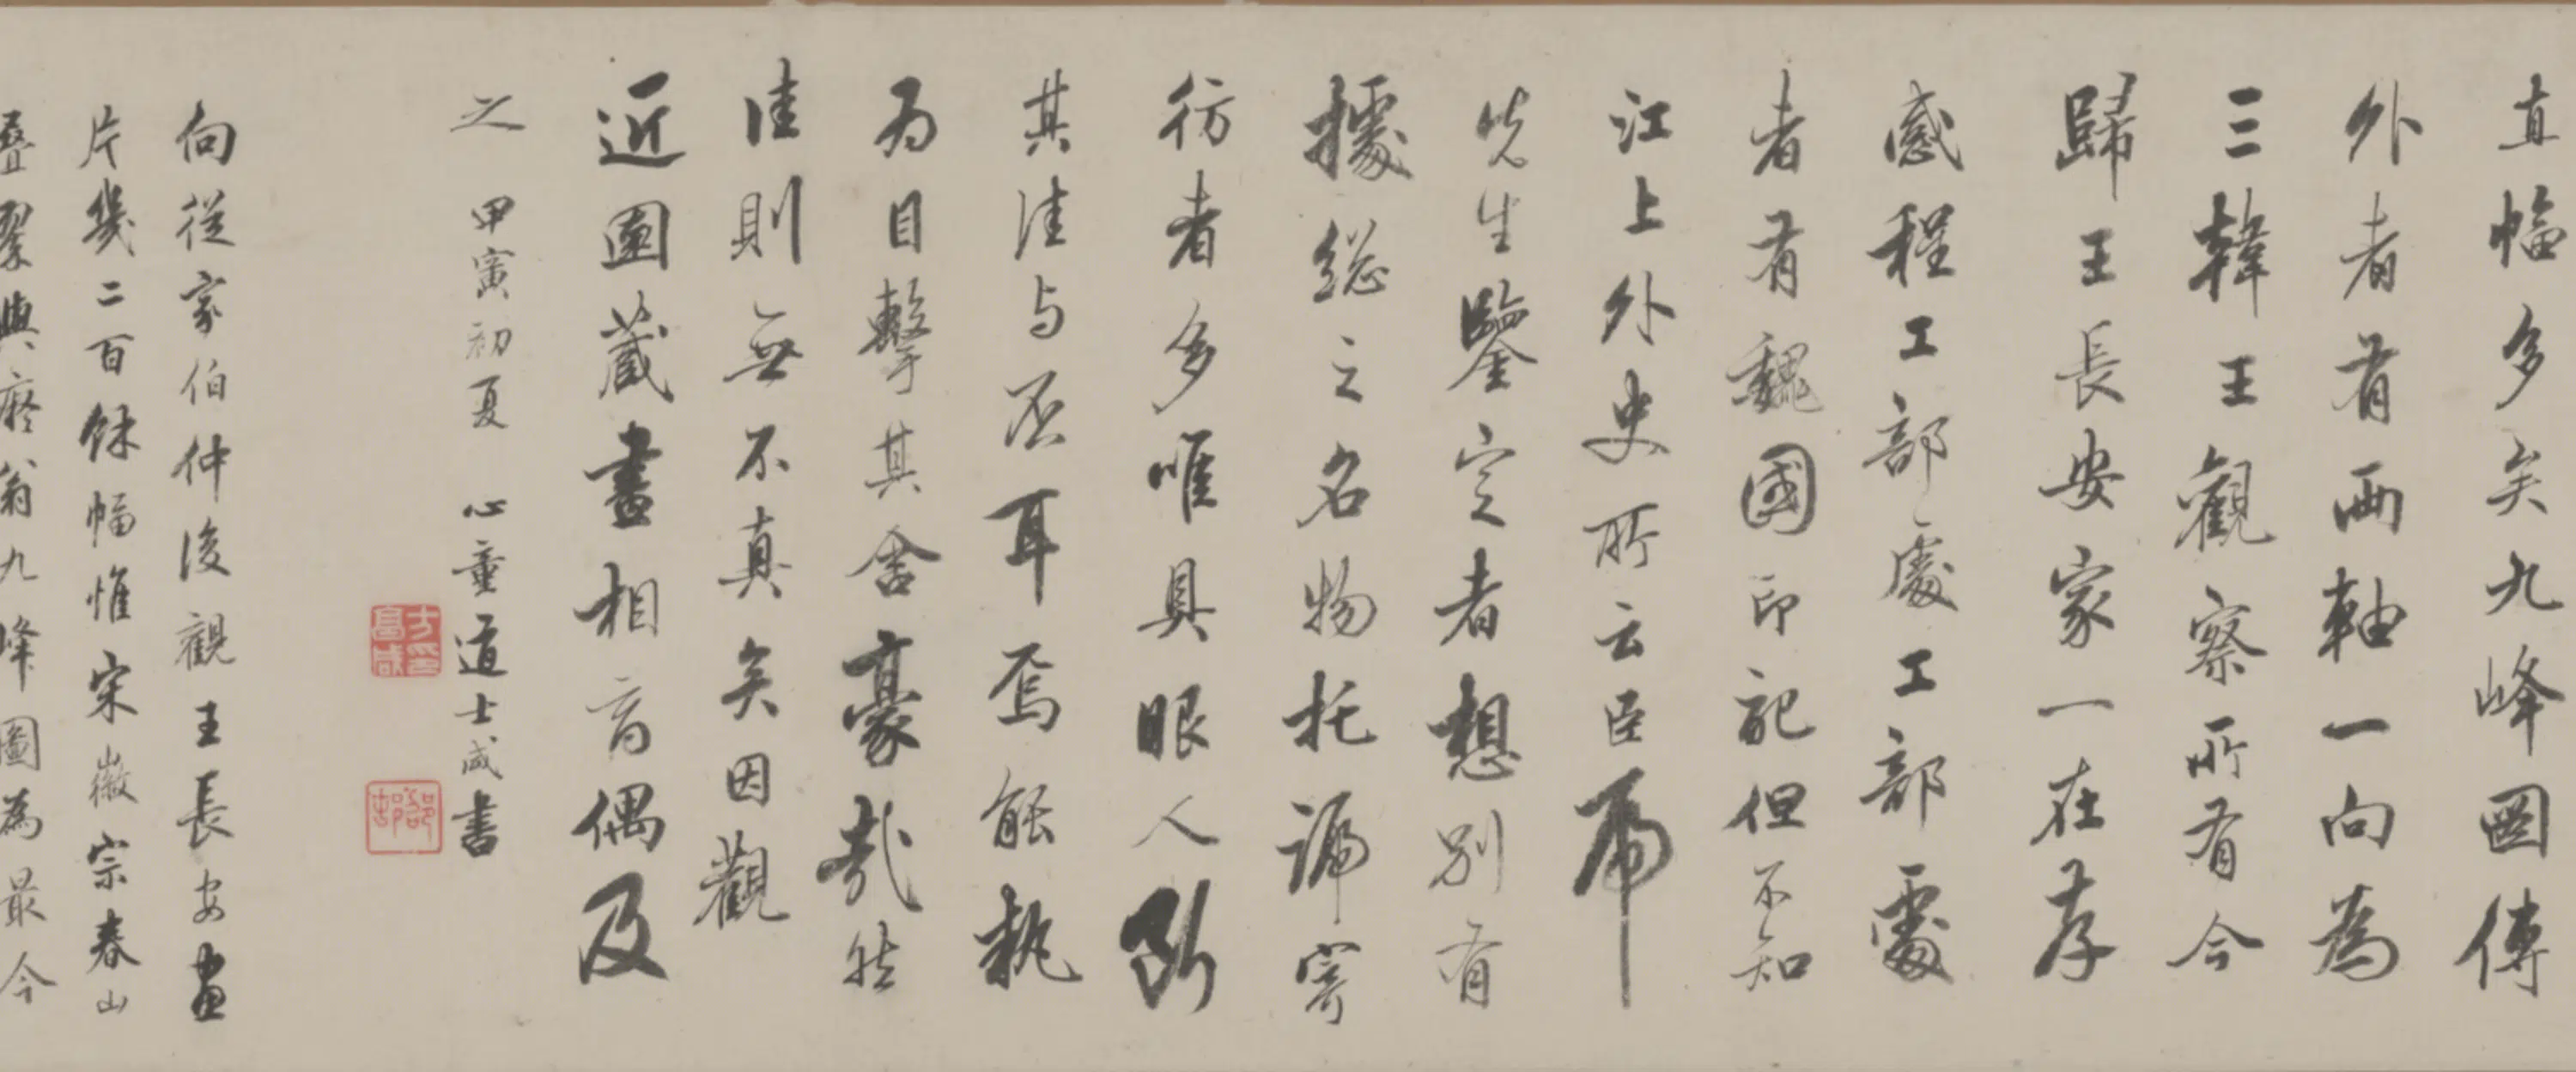 直幅多矣九峰圖傳
外者有兩軸一向為
三韓王觀察所有今
歸王長安家一在孝
感程工部處工部處
者有魏國印記但不知
江上外史所云臣虎
先生鑒定者想別有
據總之名物托謂寄
彷者多唯具眼人別
其佳与否耳焉能執
為目擊其舍豪哉然
佳則無不真矣因觀
近園藏畫相商偶及
之 甲寅初夏 心童道士咸書
向從家伯仲後觀王長安畫
片幾二百餘幅惟宋徽宗春山
疊翠與癡翁九峰圖為最今